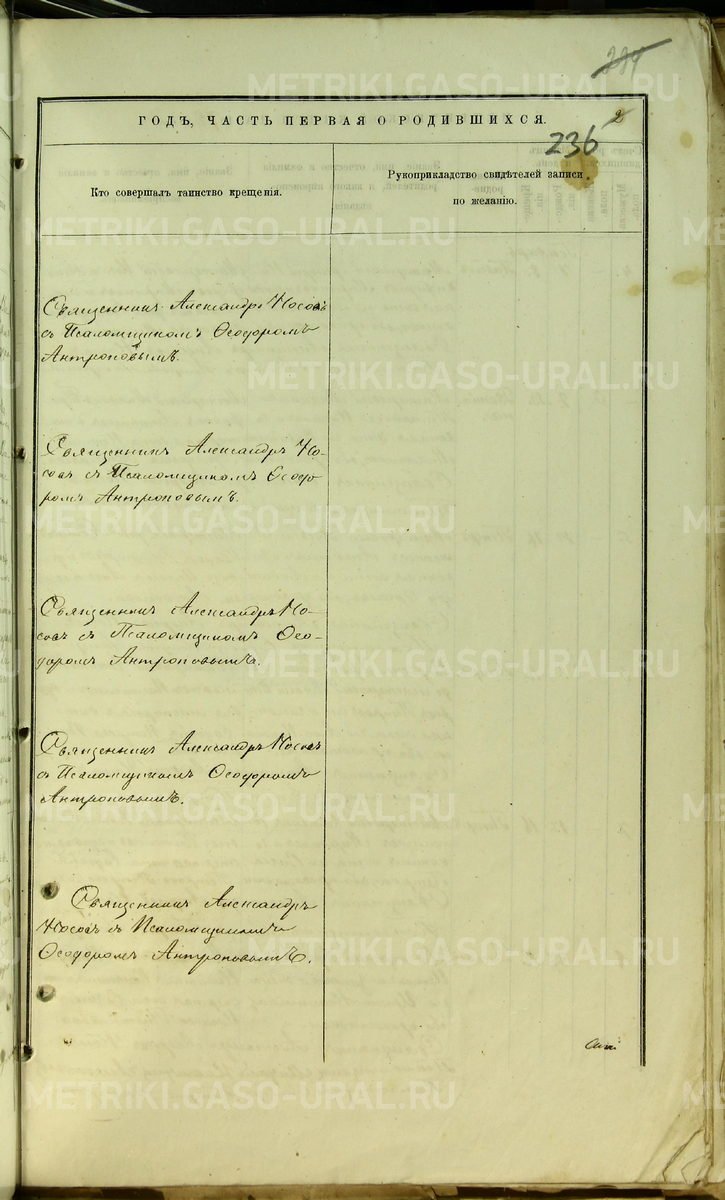 234
ГОДЪ, ЧАСТЬ ПЕРВАЯ О РОДИВШИХСЯ.
2
236
Кто совершалъ таинство крещенія.
Рукоприкладство свидѣтелей записи по желанію.
Священникъ Александръ Носовъ
съ Псаломщикомъ Ѳеодоромъ
Антроповымъ.
Священникъ Александръ Но-
совъ съ Псаломщикомъ Ѳеодо
ромъ Антроповымъ.
Священникъ Александръ Но-
совъ съ Псаломщикомъ Ѳео-
доромъ Антроповымъ.
Священникъ Александръ Носовъ
съ Псаломщикомъ Ѳеодоромъ
Антроповымъ.
Священникъ Александръ
Носовъ съ Псаломщикомъ
Ѳеодоромъ Антроповымъ.
METRIKI.GASO-URAL.RU